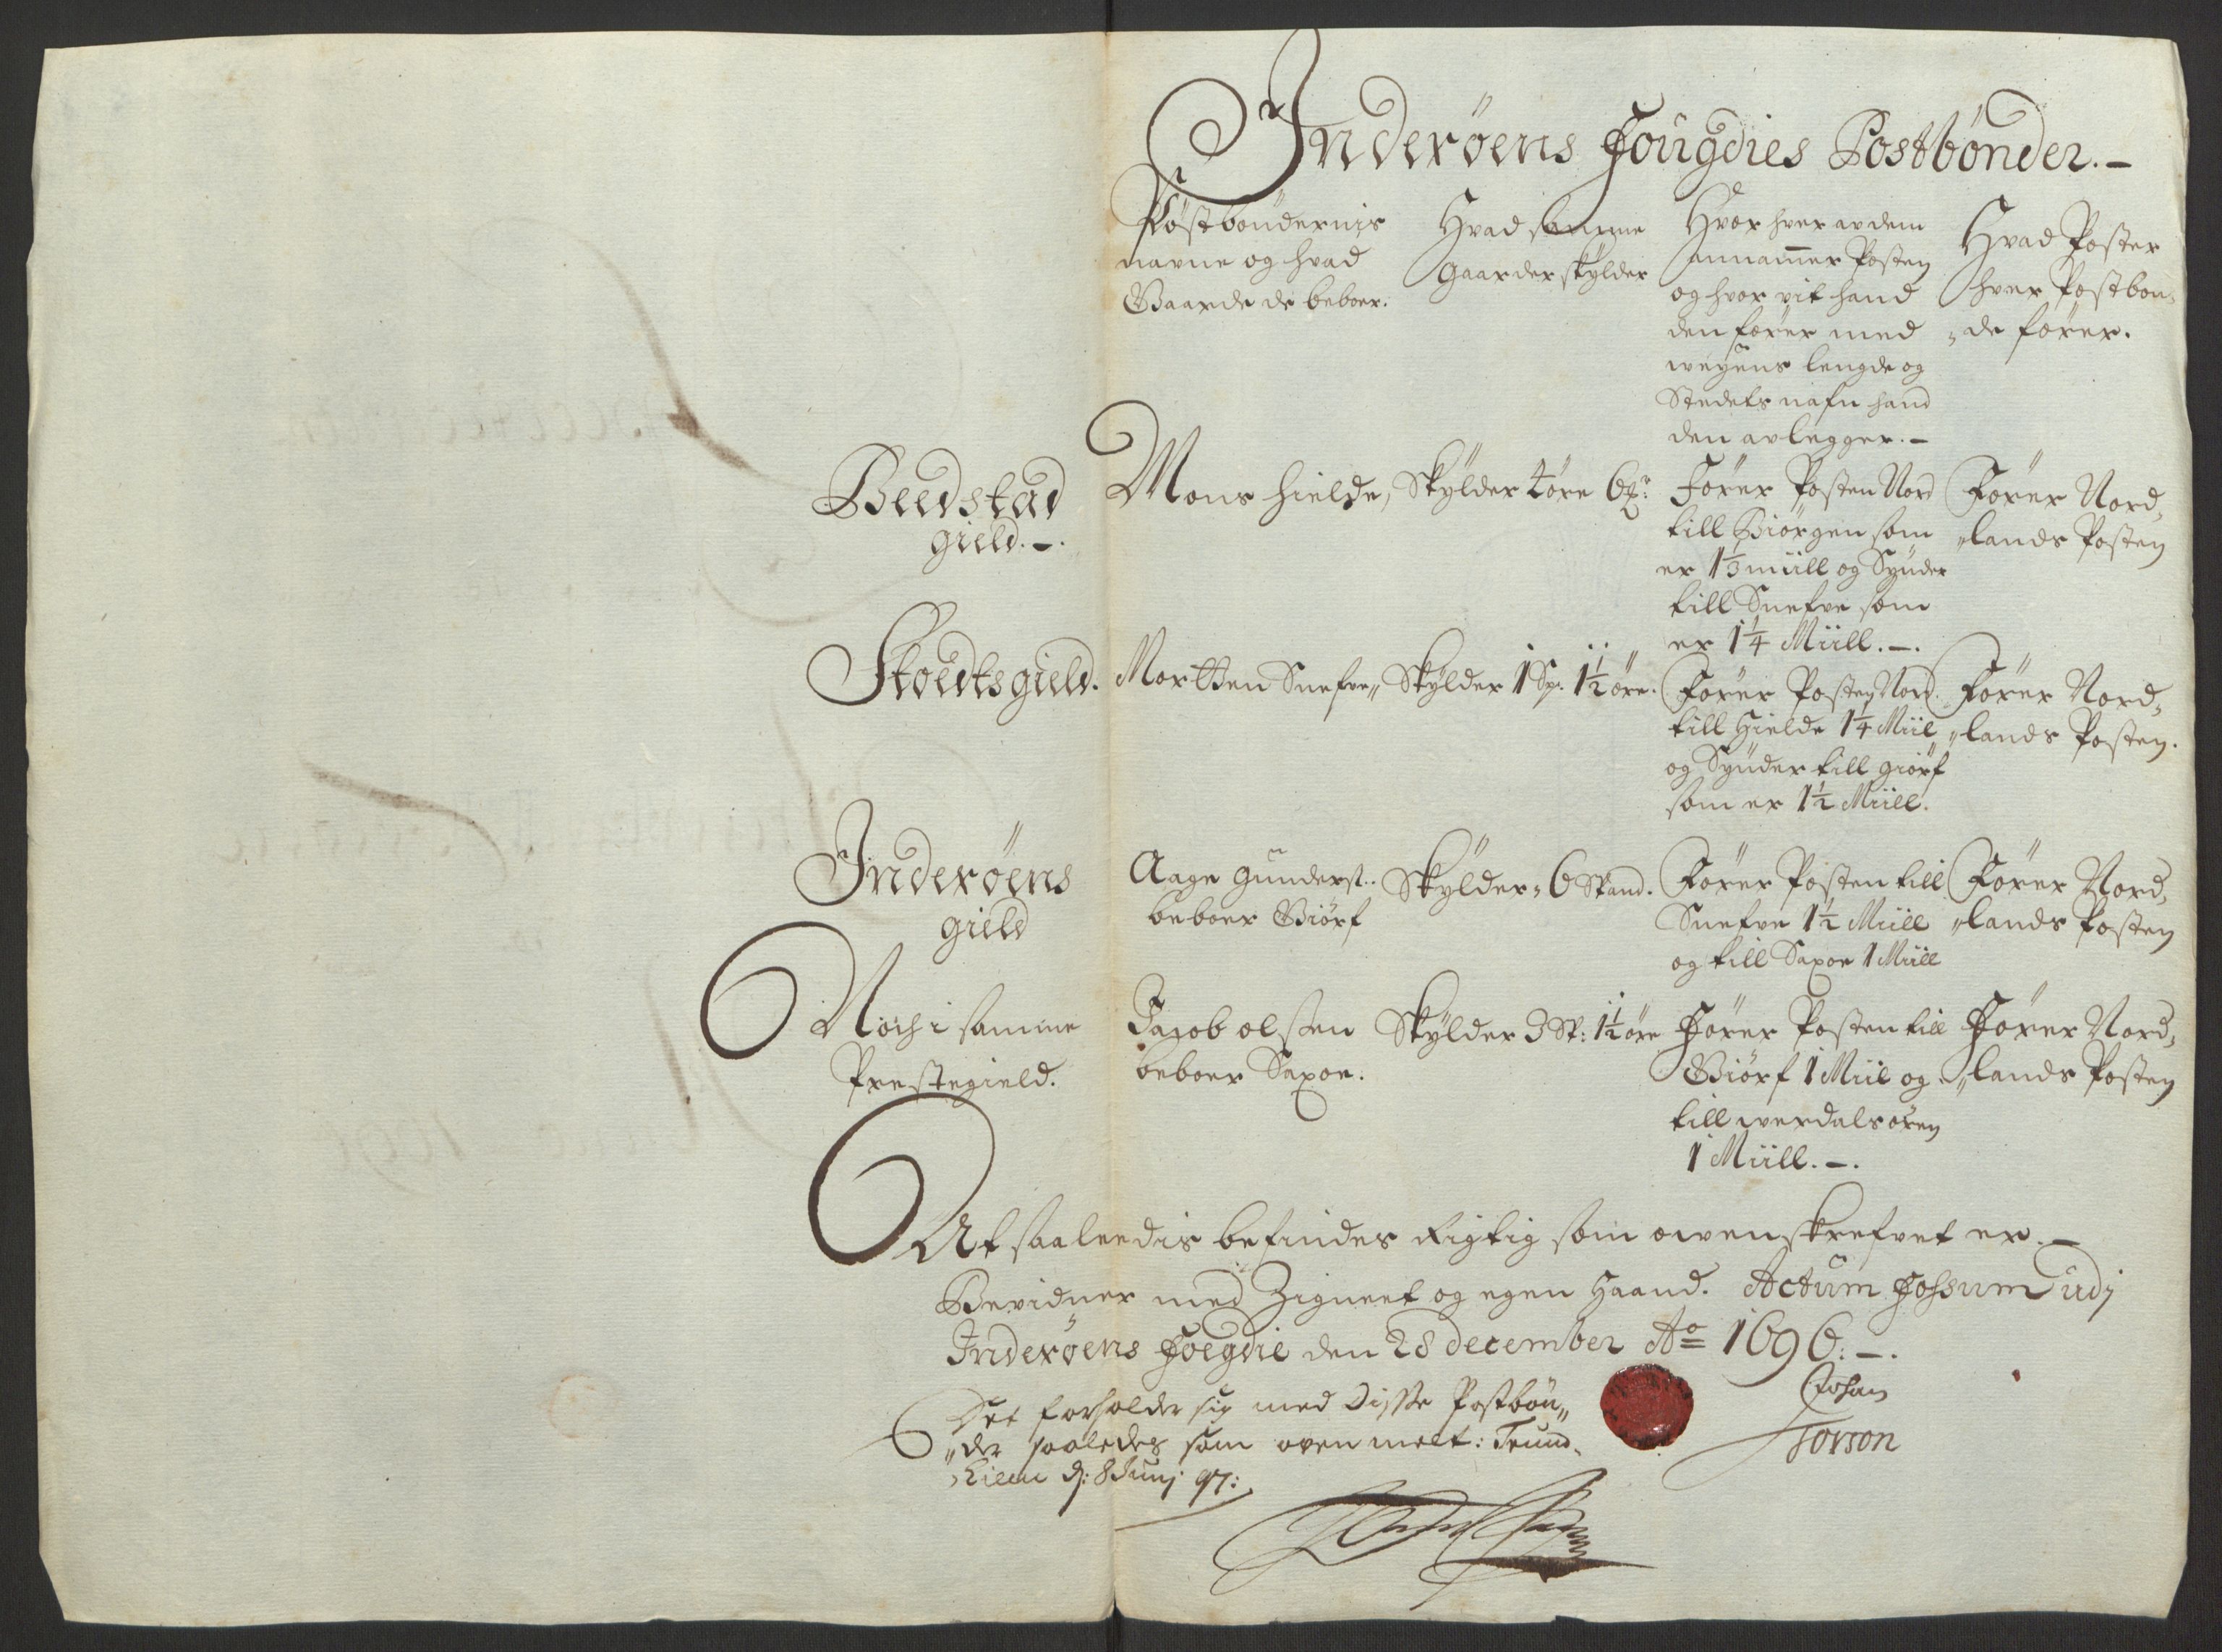 Inderöens Fougdies Postbönder.-
Postböndernis
nafne og hvad
Gaarde de beboer.
Hvad samme
gaarder skylder
Hvor hver av dem
annammer Posten
og hvor vit hand
den fører med
weyens lengde og
Stedets nafn hand
den avlegger.-
Hvad Poster
hver Postbon-
-de fører.
Beedstad
gield.-.
Mons hielde,
Skylder 2 öre 6
Förer Posten Nord
till Biörgen som
er 1⅓ miill og Synder
till Snefve som
er 1¼ Miill.-.
Förer Nord-
„lands Posten
Stoedts gield.
Mortten Snefve„
Skylder 1 Sp. 1½ öre.
Förer Posten Nord.
till Hielde 1¼ Miil
og Synder till giörf
som er 1½ Miill.
Förer Nord-
„lands Posten.
Inderöens
gield
Aage Gunders..
beboer Giörf
Skylder, 6 Spand.
Förer Posten till
Snefve 1½ Miill
og till Saxoe 1 Miill
Förer Nord-
„lands Posten
Noch i samme
Prestegield.
Jacob olsen
beboer Saxoe.
Skylder 3 Sp: 1½ öre
Förer Posten till
Giörf 1 Miil og
till werdalsören
1 Miill.-.
Förer Nord-
„lands Posten
At saaleedis befindes Rigtig som owenskrefvet er.-
Bevidner med Zigneet og egen Haand. Actum Fossum udj
Inderöens Foegdie den 28 december Ao 1696.-.
Det forholder sig med Disse Postbön„
„der saaledes som oven melt: Trund-
hiem d: 8 Junj 97:
Johan
Torson